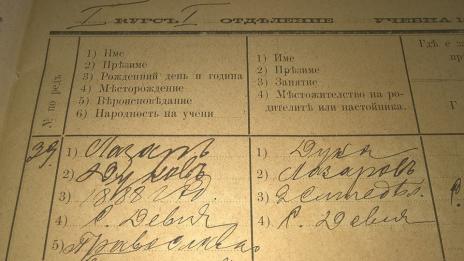 I КУРСЪ. I ОТДѢЛЕНИЕ УЧЕБНА
№ по редъ
1) Име
2) Прѣзиме
3) Рожденний день и година
4) Мѣсторождение
5) Вѣроисповѣдание
6) Народность на учени
1) Име
2) Прѣзиме
3) Занятие
4) Мѣстожителство на ро-
дителитѣ или настойника.
Где е з
39.
1) Лазаръ
2) Дуковъ
3) 1888
4) С. Девня
5) Православно
1) Дука
2) Лазаровъ
3) Земледѣл.
4) С. Девня